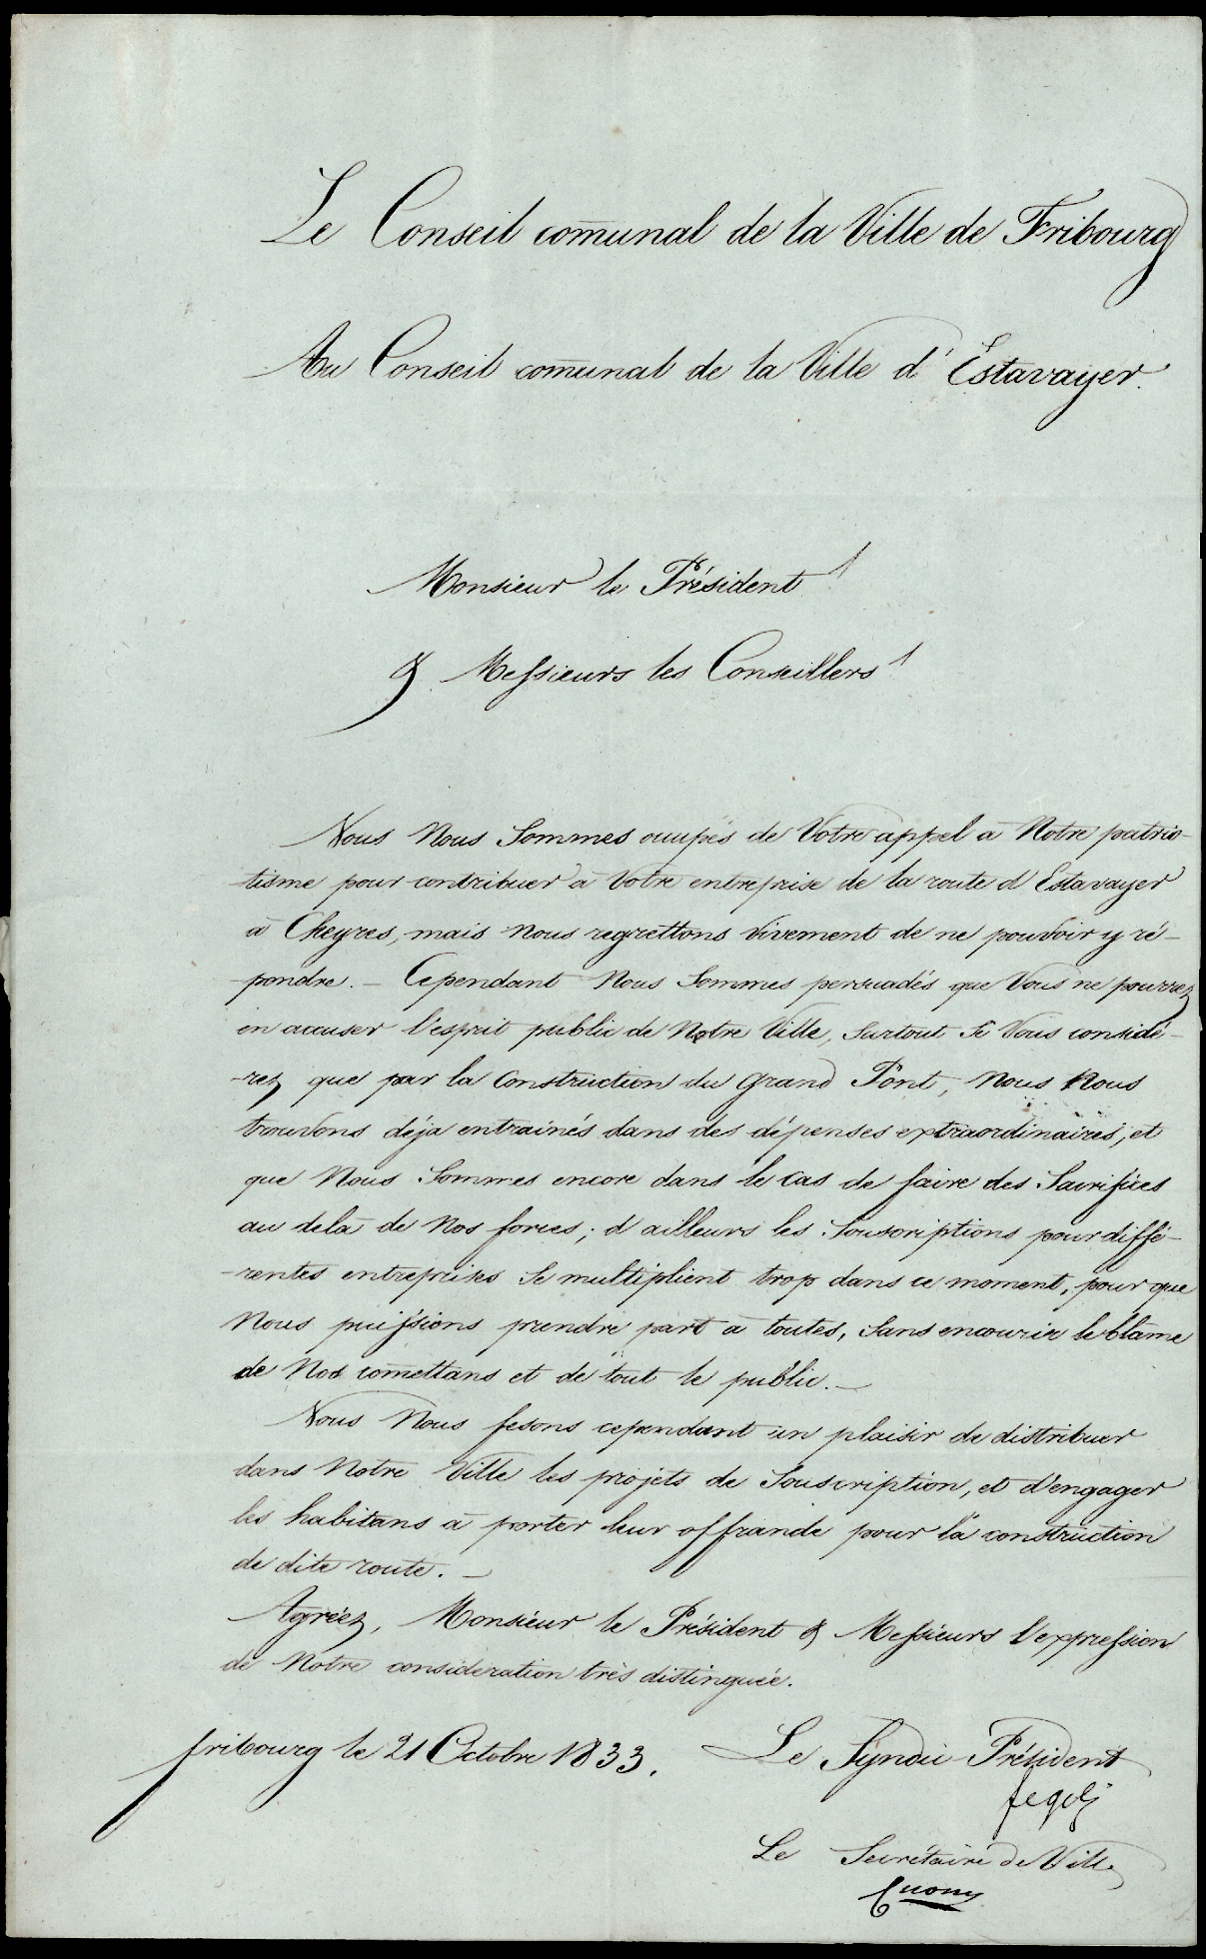 Le Conseil com̅unal de la Ville de Fribourg
Au Conseil com̅unal de la Ville d'Estavayer.
Monsieur le Président !
& Messieurs les Conseillers !
Nous Nous Sommes occupés de Votre appel à Notre patrio-
-tisme pour contribuer à Votre entreprise de la route d'Estavayer
à Cheyres, mais Nous regrettons vivement de ne pouvoir y ré-
-pondre. – Cependant Nous Sommes persuadés que Vous ne pourrez
en accuser l'esprit public de Notre Ville, Surtout Si Vous considé-
-rez que par la Construction du grand Pont, Nous Nous
trouvons déja entrainés dans des dépenses extraordinaires, et
que Nous Sommes encore dans le cas de faire des Sacrifices
au delà de Nos forces; d'ailleurs les Souscriptions pour diffé-
-rentes entreprises Se multiplient trop dans ce moment, pour que
Nous puissions prendre part à toutes, Sans encourir le blâme
de Nos com̅ettans et de tout le public. –
Nous Nous fesons cependant un plaisir de distribuer
dans Notre Ville les projets de Souscription, et d'engager
les habitans à porter leur offrande pour la construction
de dite route. –
Agréez, Monsieur le Président & Messieurs l'expression
de Notre consideration très distinguée.
fribourg le 21 Octobre 1833.
Le Syndic Président
fegely
Le Secrétaire de Ville
Cuony